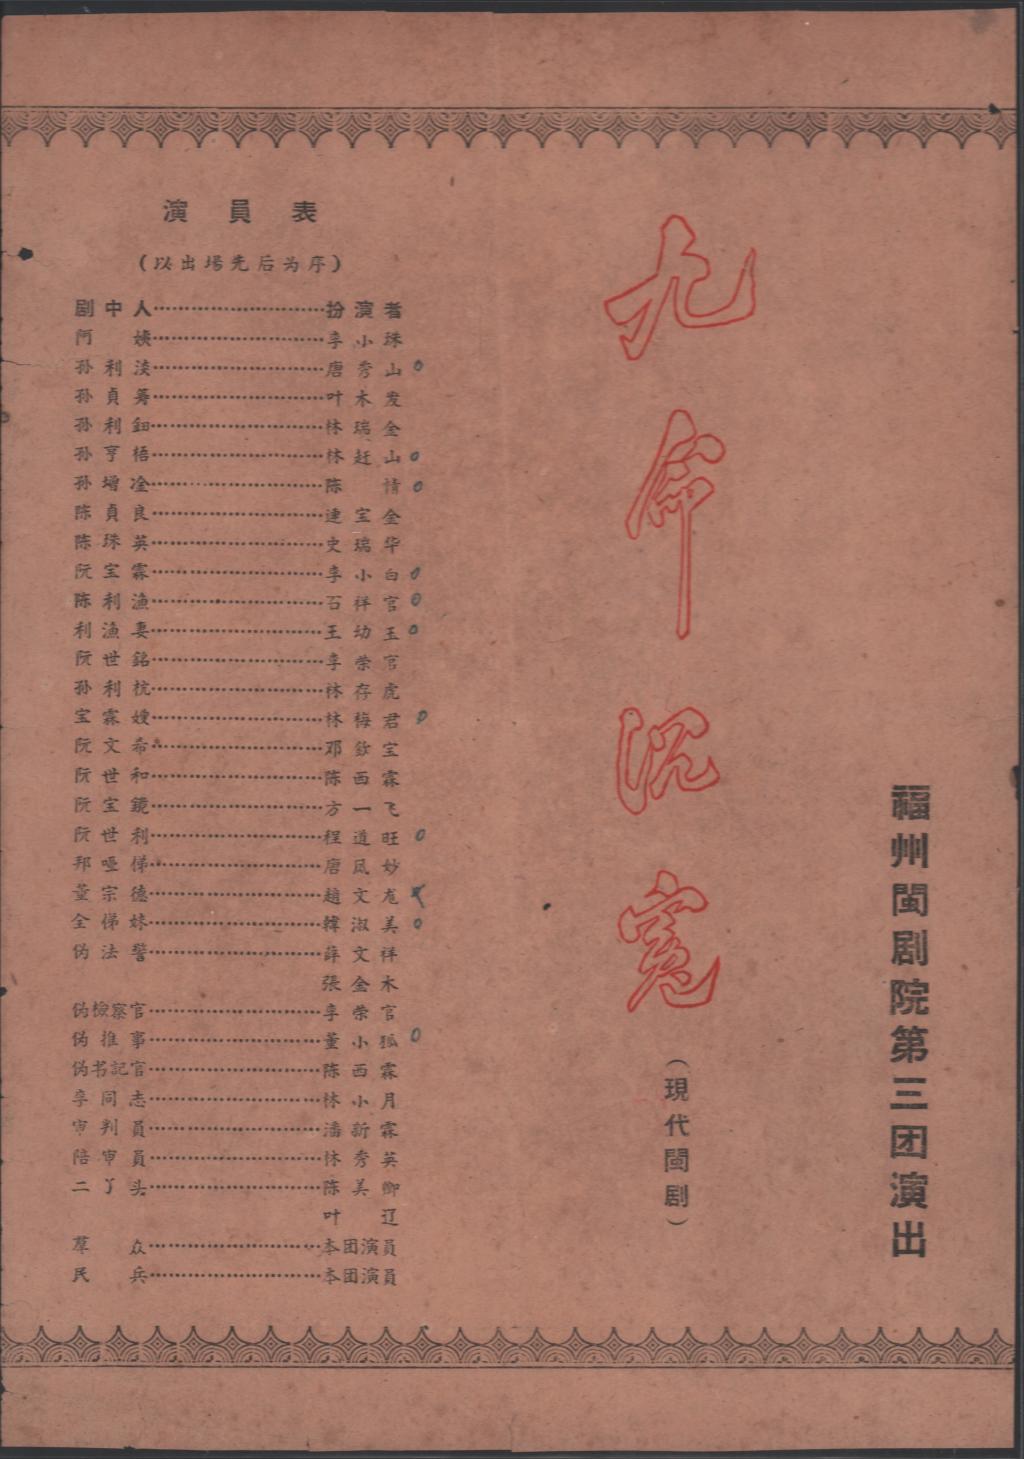 福州閩剧院第三团演出
九命沉寃
（現代閩剧）
演員表
（以出場先后为序）
剧中人⋯⋯⋯⋯⋯⋯⋯⋯扮演者
阿姨⋯⋯⋯⋯⋯⋯⋯⋯李小珠
孙利淡⋯⋯⋯⋯⋯⋯⋯⋯唐秀山
孙貞筹⋯⋯⋯⋯⋯⋯⋯⋯叶木发
孙利鈿⋯⋯⋯⋯⋯⋯⋯⋯林瑞金
孙亨梧⋯⋯⋯⋯⋯⋯⋯⋯林赶山
孙增淦⋯⋯⋯⋯⋯⋯⋯⋯陈情
陈貞良⋯⋯⋯⋯⋯⋯⋯⋯連宝金
陈珠英⋯⋯⋯⋯⋯⋯⋯⋯史瑞华
阮宝霖⋯⋯⋯⋯⋯⋯⋯⋯李小白
陈利漁⋯⋯⋯⋯⋯⋯⋯⋯石祥官
利漁妻⋯⋯⋯⋯⋯⋯⋯⋯王幼玉
阮世銘⋯⋯⋯⋯⋯⋯⋯⋯李荣官
孙利杭⋯⋯⋯⋯⋯⋯⋯⋯林存虎
宝霖嫂⋯⋯⋯⋯⋯⋯⋯⋯林梅君
阮文希⋯⋯⋯⋯⋯⋯⋯⋯邓欽宝
阮世和⋯⋯⋯⋯⋯⋯⋯⋯陈西霖
阮宝鏡⋯⋯⋯⋯⋯⋯⋯⋯方一飞
阮世利⋯⋯⋯⋯⋯⋯⋯⋯程道旺
邦哑俤⋯⋯⋯⋯⋯⋯⋯⋯唐凤妙
董宗德⋯⋯⋯⋯⋯⋯⋯⋯趙文
全俤妹⋯⋯⋯⋯⋯⋯⋯⋯韓淑美
伪法警⋯⋯⋯⋯⋯⋯⋯⋯薛文祥
張金木
伪檢察官⋯⋯⋯⋯⋯⋯⋯⋯李荣官
伪推事⋯⋯⋯⋯⋯⋯⋯⋯董小狐
伪书記官⋯⋯⋯⋯⋯⋯⋯⋯陈西霖
李同志⋯⋯⋯⋯⋯⋯⋯⋯林小月
审判員⋯⋯⋯⋯⋯⋯⋯⋯潘新霖
陪审員⋯⋯⋯⋯⋯⋯⋯⋯林秀英
二丫头⋯⋯⋯⋯⋯⋯⋯⋯陈美卿
叶辽
羣众⋯⋯⋯⋯⋯⋯⋯⋯本团演員
民兵⋯⋯⋯⋯⋯⋯⋯⋯本团演員